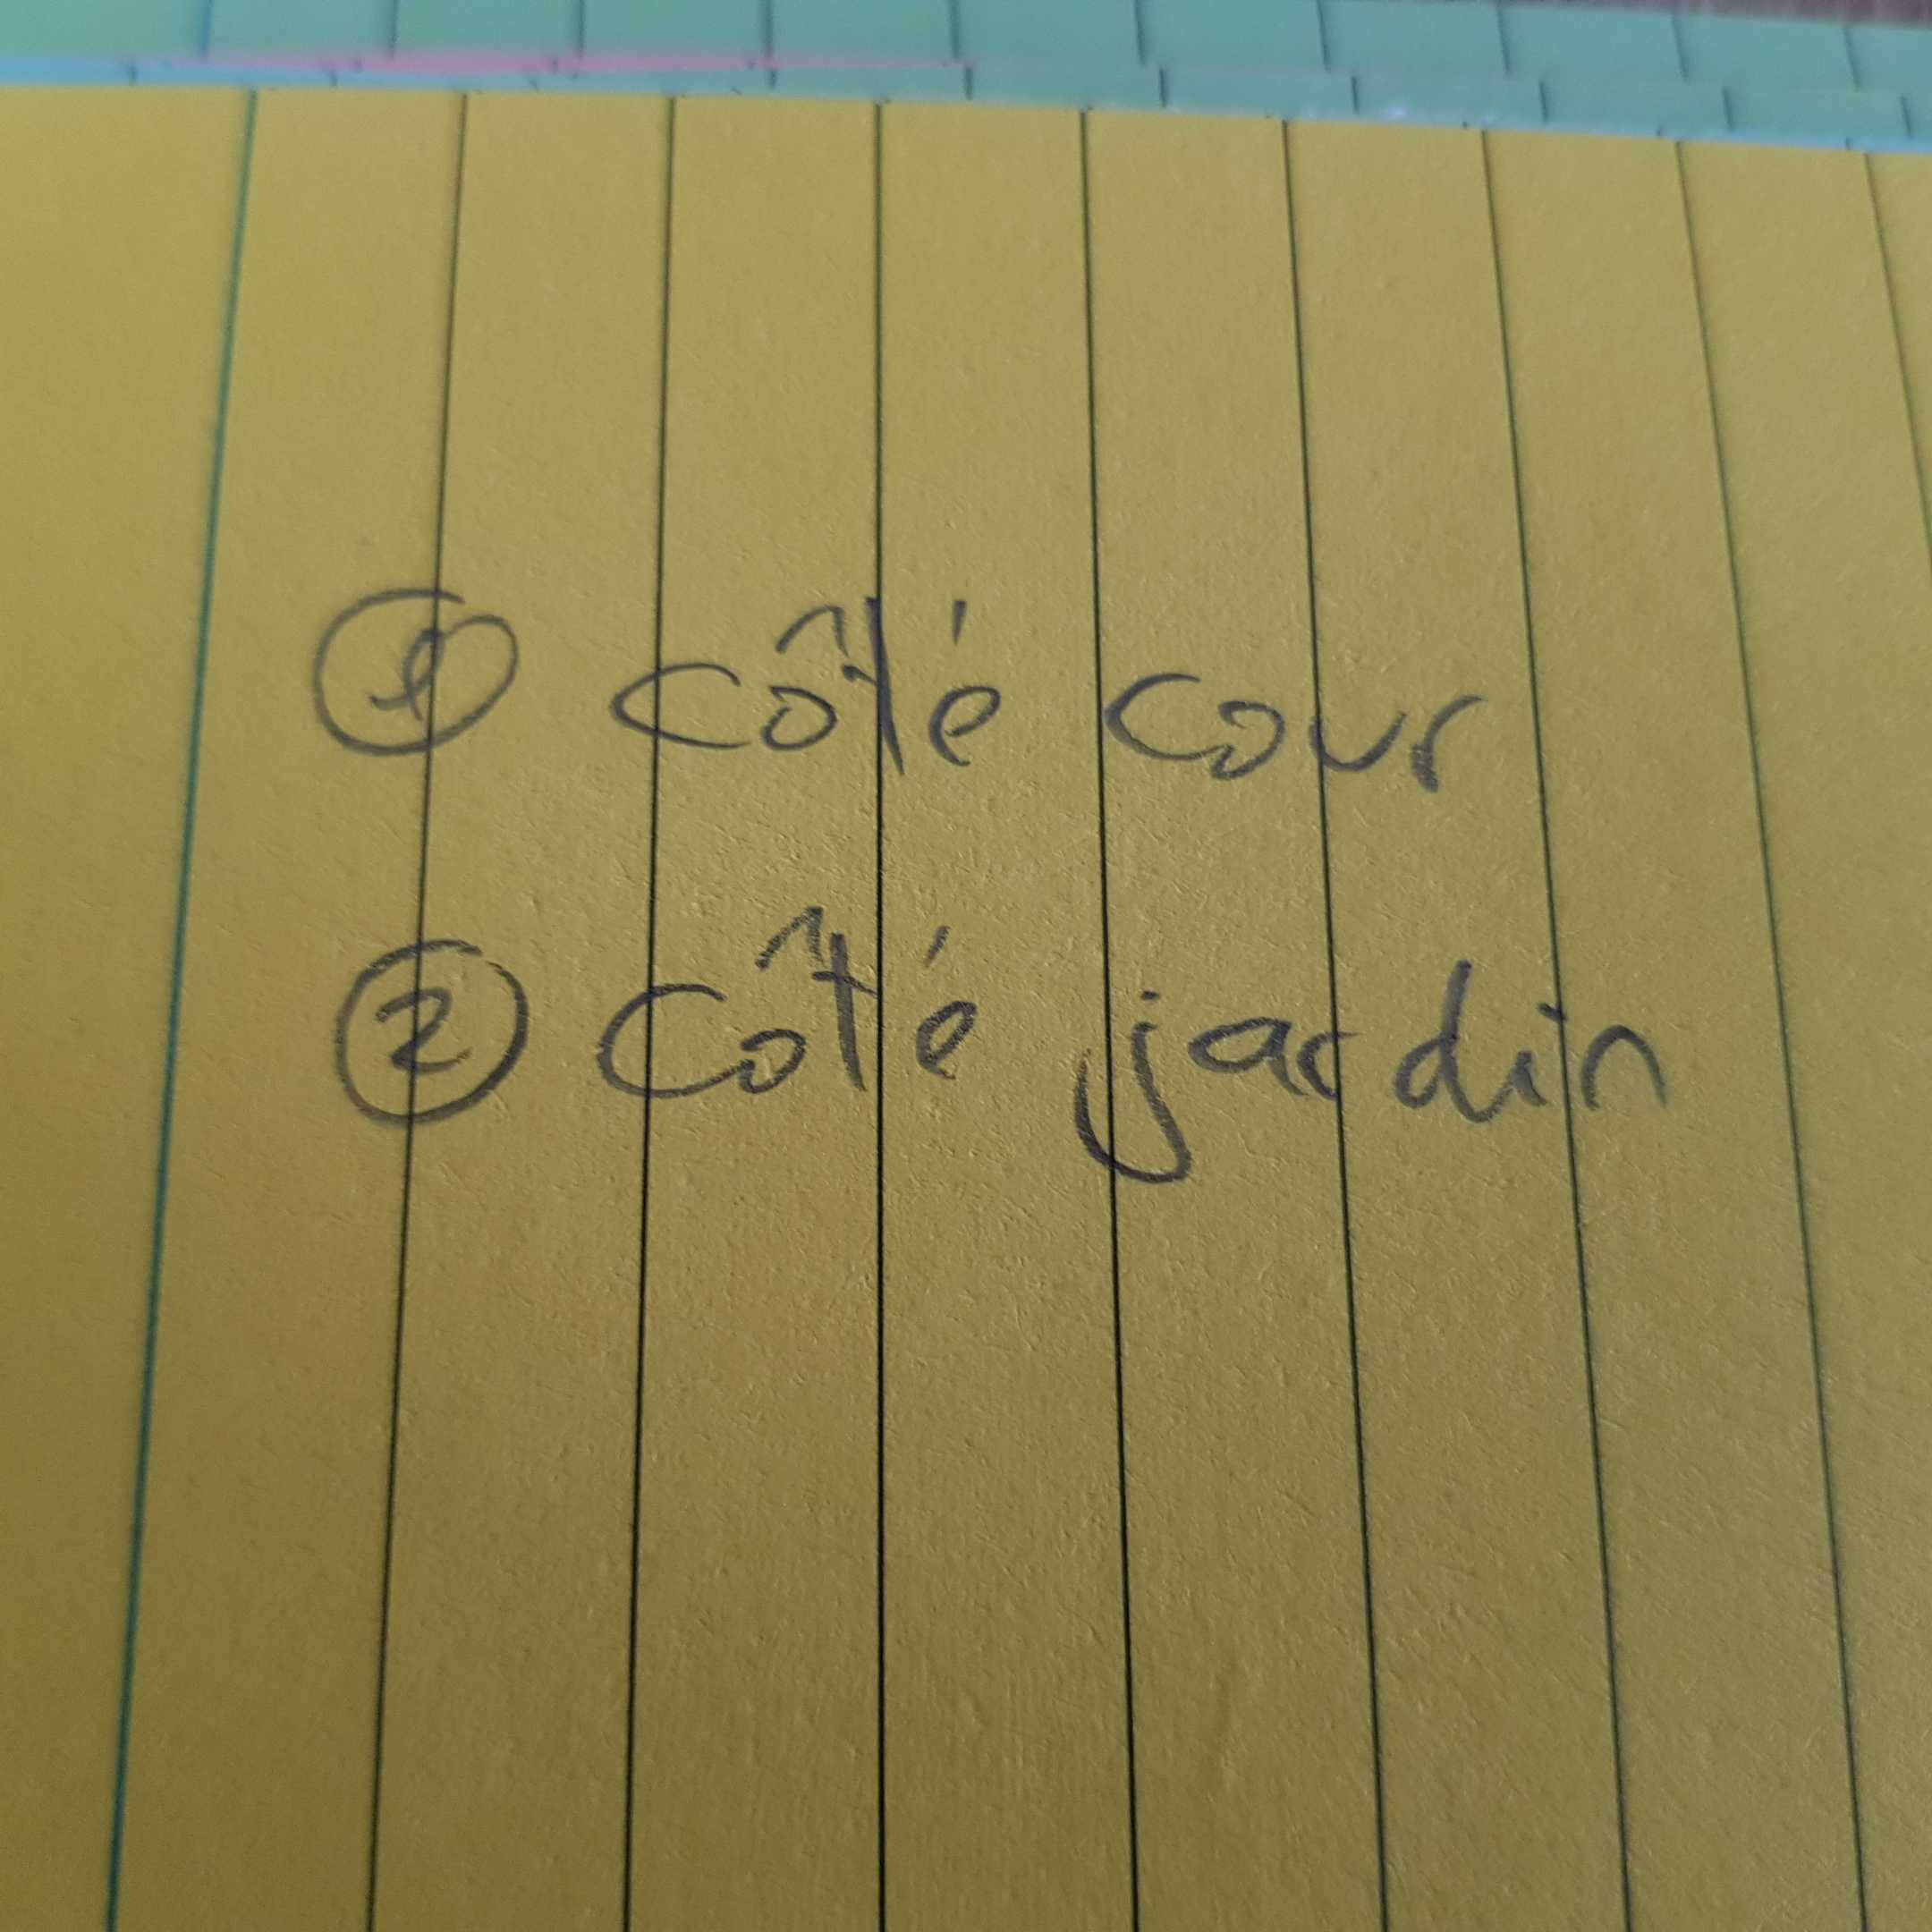 ① côté cour
② Côté jardin